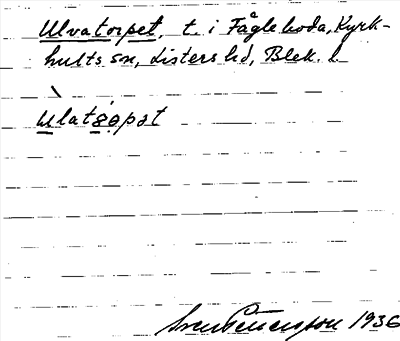 Ulvatorpet, t. i Fågleboda, Kyrk-
hults sn, Listers hd, Blek. l.
ulatǫpət
1936